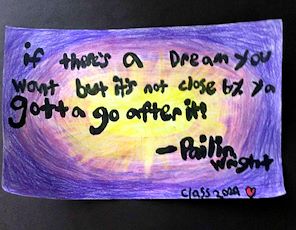 if there's a Dream you
want but it's not close by ya
gotta go after it!
- Pailin
Wright
Class 2024